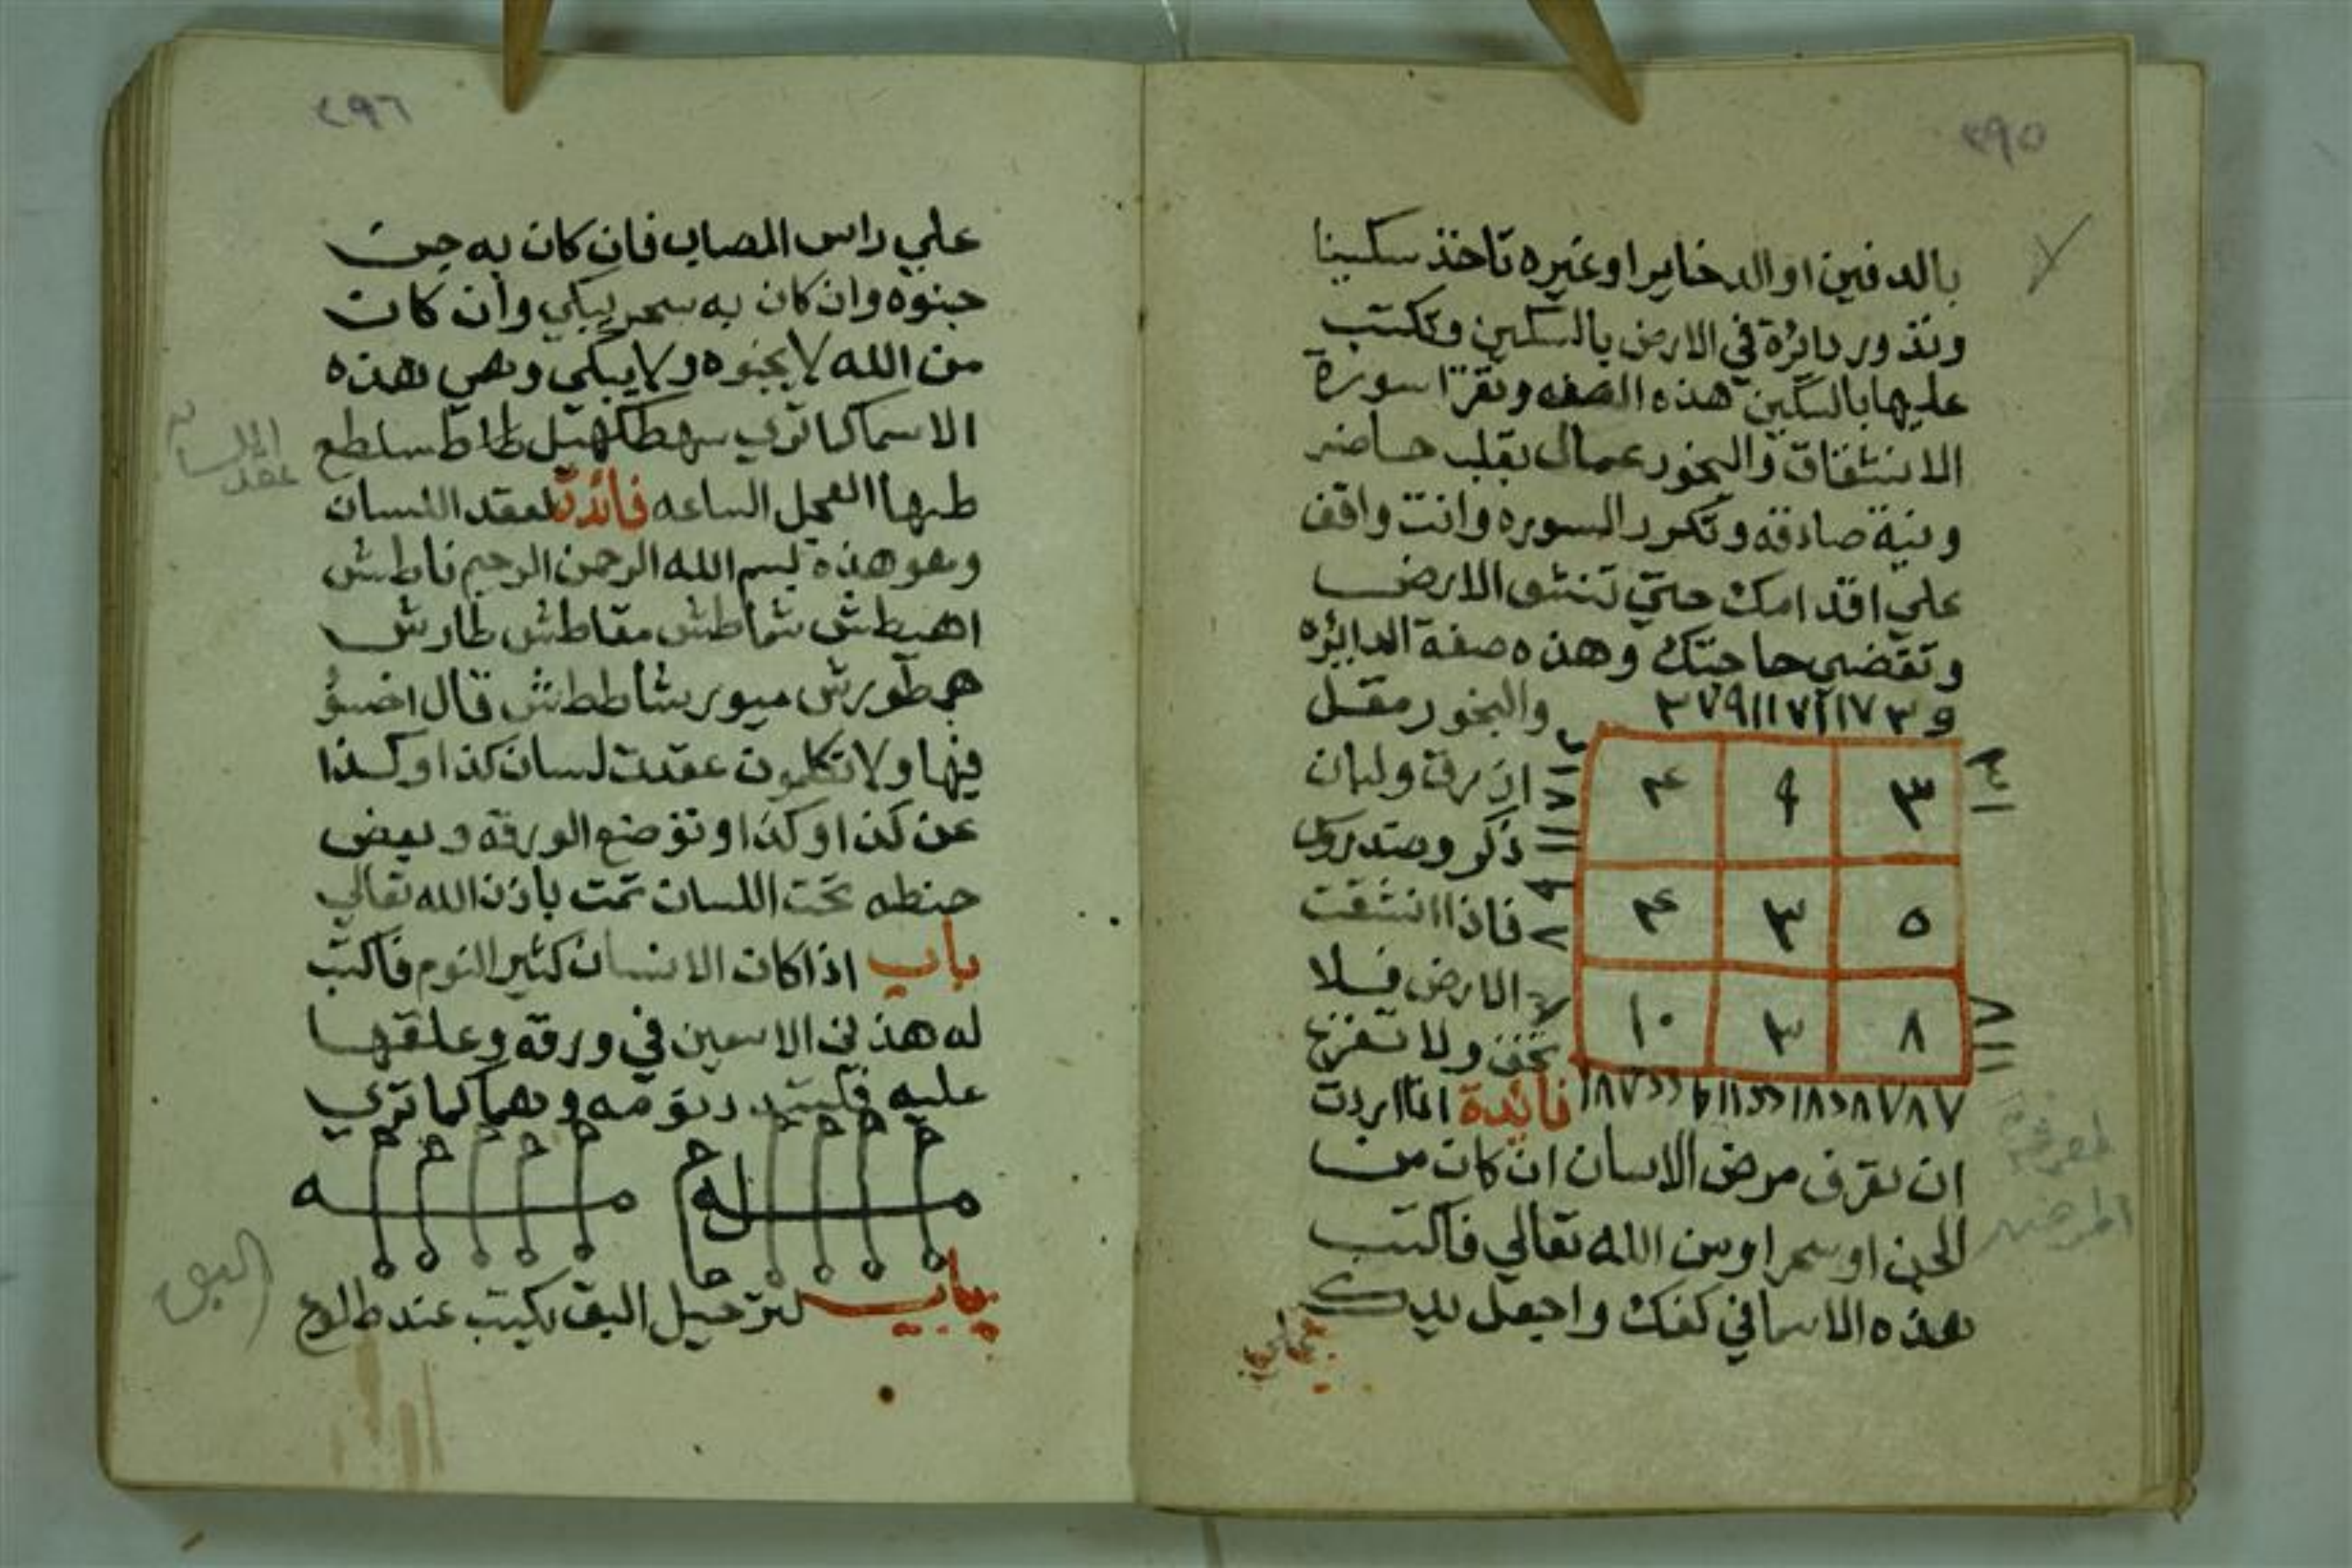 ٢٩٥
بالدفين او الدخاير او غيره تاخذ سكينا
وتدور دائرة في الارض بالسكين وتكتب
عليها بالسكين هذه الصفه وتقرا سورة
الانشقاق والبخور عمال بقلب حاضر
ونية صادقه وتكرر السوره وانت واقف
علي اقدامك حتي تنشق الارض
وتقضي حاجتك وهذه صفة الدايره
والبخور مقل
ازرق ولبان
ذكر وصندروس
فاذا انشقت
الارض فلا
تخف ولا تفزع
٣ ٩ ۴
٥ ٣ ۴
٨ ٣ ١٠
فائدة اذا اردت
ان تعرف مرض الانسان ان كان من
الجن او سحر او من الله تعالي فاكتب
هذه الاسما في كفك واجعل يدك
علي
لمعرفة
المرض
٢٩٦
علي راس المصاب فان كان به جن
جننوه وان كان به سحر يبكي وان كان
من الله لا يجننوه ولا يبكي وهي هذه
الاسما كما تري سهطكهيل طاطسلطع
طهها العجل الساعه فائدة لعقد اللسان
وهو هذه بسم الله الرحمن الرحيم ناطش
اهيطش شماطش مقاطش طارش
همطورش ميورشاططش قال اخسؤ
فيها ولا تكلمون عقدت لسان كذا وكذا
عن كذا وكذا وتوضع الورقه وبعض
حنطه تحت اللسان تمت باذن الله تعالي
باب اذا كان الانسان كثير النوم فاكتب
له هذين الاسمين في ورقه وعلقها
عليه نومه وهما كما تري
باب لترحيل البق يكتب عند طلوع
عقد اللسان
البق